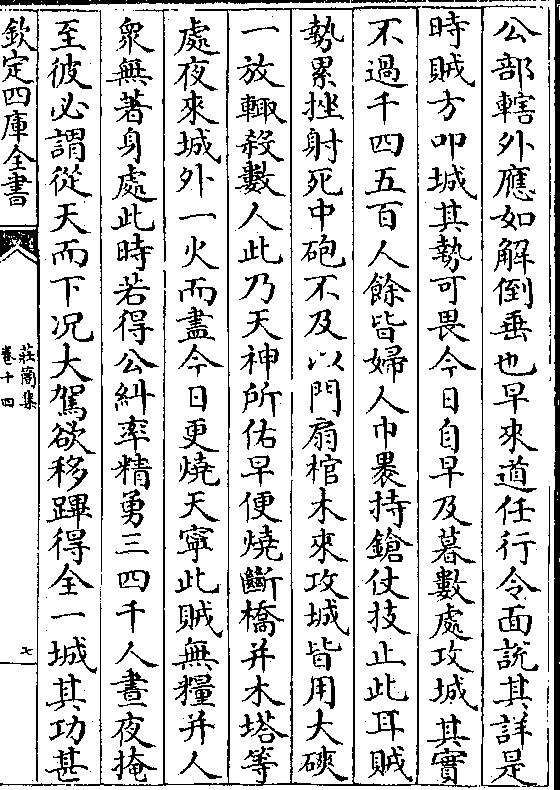 公部轄外應如解倒垂也早來道任行令面說其詳是
時賊方叩城其勢可畏今日自早及暮數處攻城其實
不過千四五百人餘皆婦人巾褁持鎗仗技止此耳賊
勢累挫射死中砲不及以門扇棺木來攻城皆用大磢
一放輙殺數人此乃天神所佑早便燒斷橋并木塔等
處夜來城外一火而盡今日更燒天寧此賊無糧并人
衆無著身處此時若得公糾率精勇三四千人晝夜掩
至彼必謂從天而下况大駕欲移蹕得全一城其功甚
欽定四庫全書
莊簡集
卷十四
七